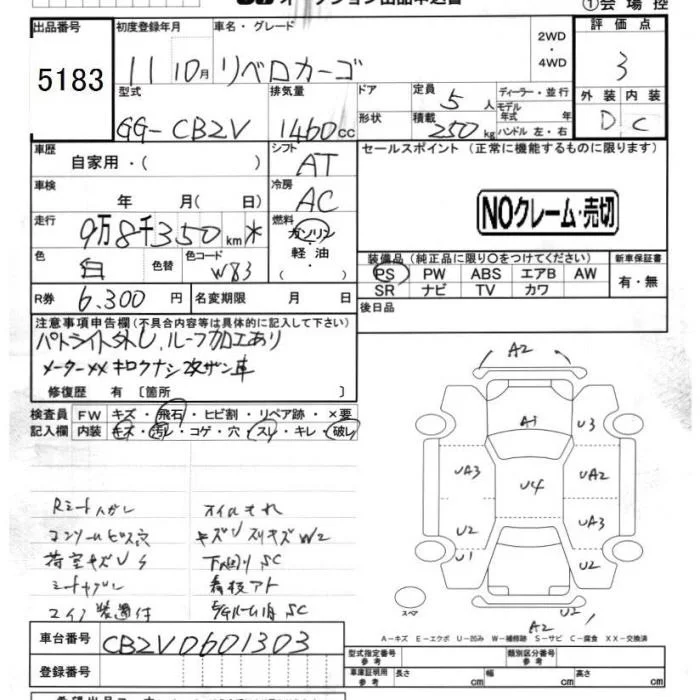 ①会場控
出品番号
5183
初度登録年月
11 10月
車名・グレード
リベロカーゴ
2WD
・
4WD
評価点
3
外装 内装
D C
型式
GG-CB2V
排気量
1460cc
ドア
形状
定員
5人
積載
250kg
ディーラー・並行
モデル年式 年
ハンドル 左・右
車歴
自家用・( )
シフト
AT
セールスポイント (正常に機能するものに限ります)
NOクレーム・売切
車検
年 月( 日)
冷房
AC
走行
9万8千350km*
燃料
ガソリン
・
軽油
( ・ )
色
白
色替
色コード
W83
装備品(純正品に限り○をつけてください)
PS PW ABS エアB AW
SR ナビ TV カワ
新車保証書
有・無
R券
6,300円
名変期限 月 日
後日品
注意事項申告欄(不具合内容等は具体的に記入して下さい)
パトライト外し、ルーフ加工あり
メーター** キロクナシ 改ザン車
修復歴 有 〔箇所 〕
検査員記入欄
FW キズ・飛石・ヒビ割・リペア跡・×要
内装 キズ・汚レ・コゲ・穴・スレ・キレ・破レ
オイルもれ
荷室キズU S
下廻り SC
A2
A1
U3
UA3
U4
UA2
U2
UA3
U1
U2
スペア
U2
A2
A-キズ E-エクボ U-凹み W-補修跡 S-サビ C-腐食 XX-交換済
車台番号
CB2V0601303
登録番号
型式指定番号 参考
類別区分番号 参考
車庫証明用 参考
長さ cm
幅 cm
高さ cm